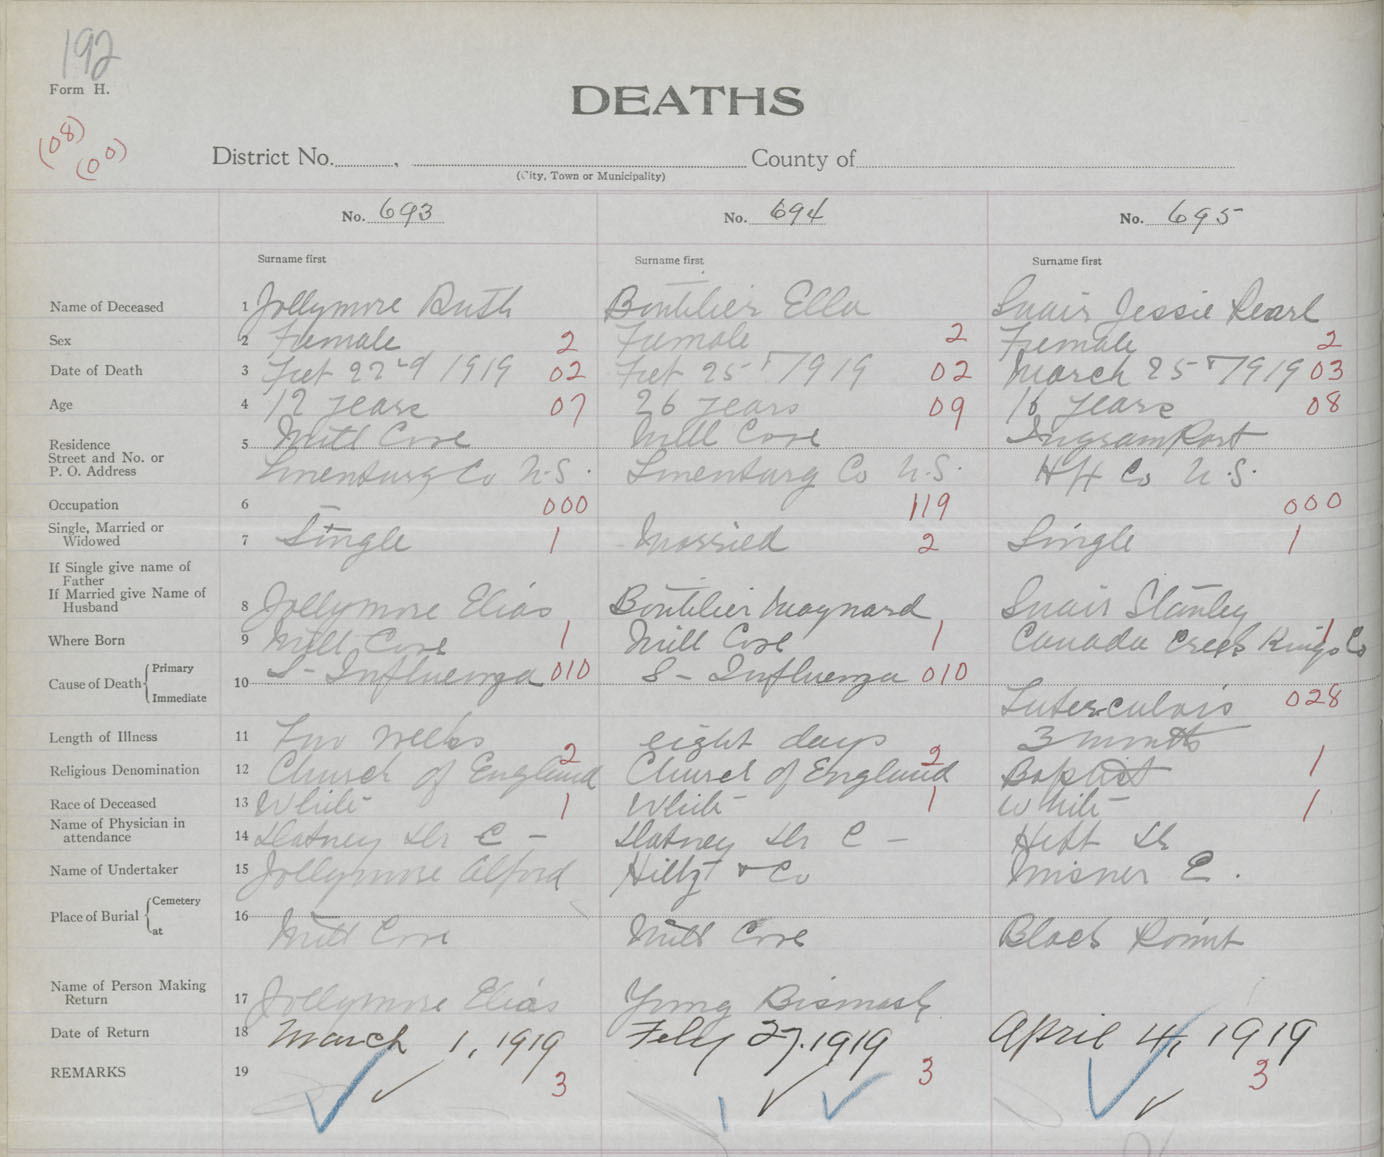 192
Form H.
(08)
(00)
DEATHS
District No. , County of
(City, Town or Municipality)
No. 693 No. 694 No. 695
Surname first Surname first Surname first
Name of Deceased 1 Jollymore Ruth Boutilier Ella Snair Jessie Pearl
Sex 2 Female 2 Female 2 Female 2
Date of Death 3 Feb 22nd 1919 02 Feb 25 1919 02 March 25 1919 03
Age 4 12 years 07 26 years 09 16 years 08
Residence 5 Mill Cove Mill Cove Ingram Port
Street and No. or
P. O. Address Lunenburg Co N.S. Lunenburg Co N.S. Hfx Co N.S.
Occupation 6 — 000 119 000
Single, Married or
Widowed 7 Single 1 Married 2 Single 1
If Single give name of
Father
If Married give Name of
Husband 8 Jollymore Elias Boutilier Maynard Snair Stanley
Where Born 9 Mill Cove 1 Mill Cove 1 Canada Creek Kings Co 1
Cause of Death Primary 10 S- Influenza 010 S- Influenza 010
Immediate Tuberculosis 028
Length of Illness 11 Two weeks eight days 3 months
Religious Denomination 12 Church of England 2 Church of England 2 Baptist 1
Race of Deceased 13 White 1 White 1 White 1
Name of Physician in
attendance 14 Dr C — Dr C — Dr
Name of Undertaker 15 Jollymore Alford Hiltz & Co Misner E.
Place of Burial Cemetery 16
at Mill Cove Mill Cove Black Point
Name of Person Making
Return 17 Jollymore Elias Young Bismark
Date of Return 18 March 1, 1919 Feby 27. 1919 April 4, 1919
REMARKS 19 3 3 3